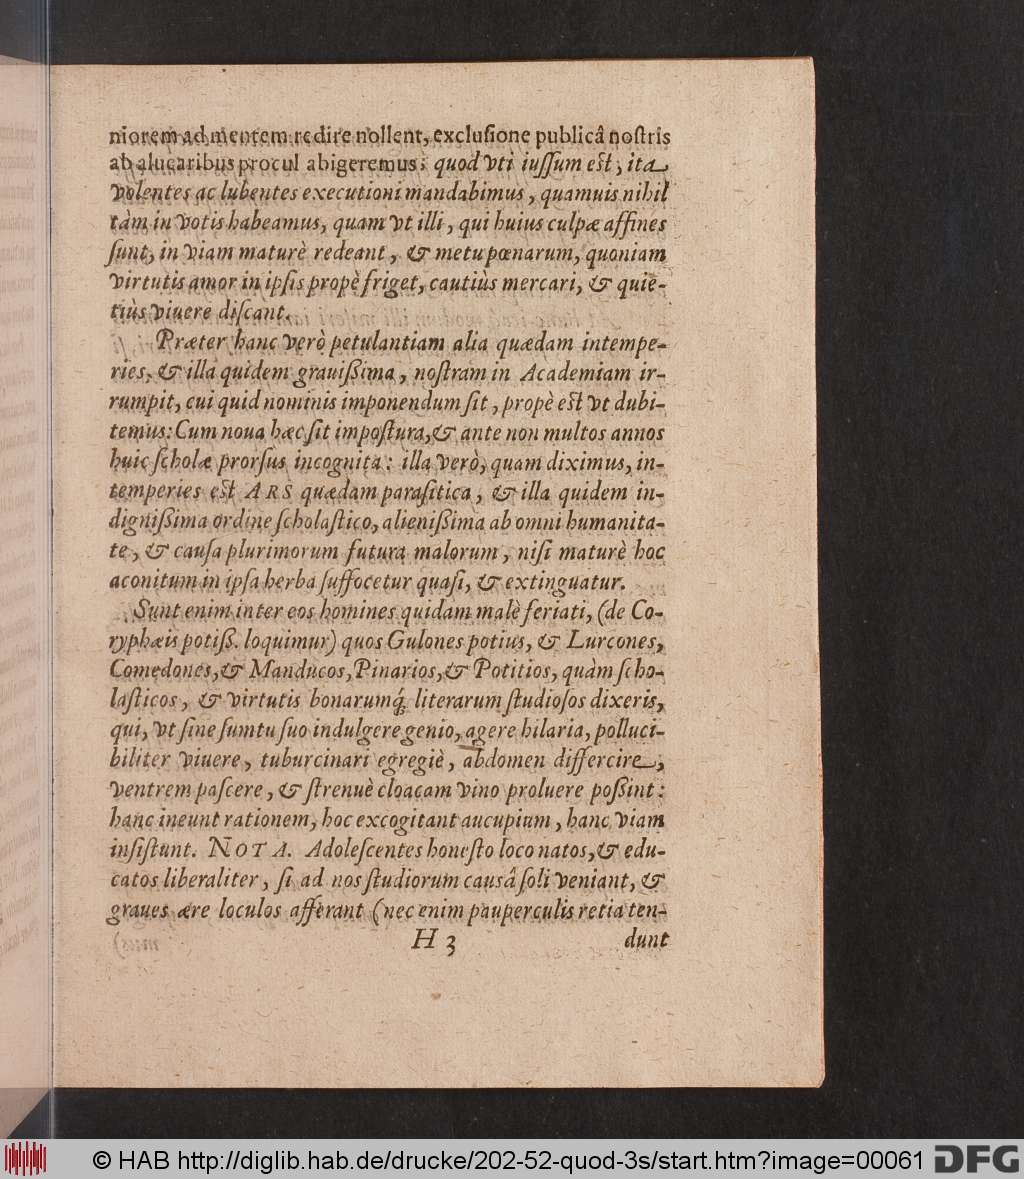 niorem ad mentem redire nollent, excluſione publicâ noſtris
ab alucaribus procul abigeremus; quod vti iuſſum eſt, ita
volentes ac lubentes executioni mandabimus, quamuis nihil
tàm in votis habeamus, quam vt illi, qui huius culpæ affines
ſunt, in viam maturè redeant, & metu pœnarum, quoniam
virtutis amor in ipſis propè friget, cautiùs mercari, & quie-
tiùs viuere diſcant.
Præter hanc verò petulantiam alia quædam intempe-
ries, & illa quidem grauißima, noſtram in Academiam ir-
rumpit, cui quid nominis imponendum ſit, propè eſt vt dubi-
temus: Cum noua hæc ſit impoſtura, & ante non multos annos
huic ſcholæ prorſus incognita: illa verò, quam diximus, in-
temperies eſt ARS quædam paraſitica, & illa quidem in-
dignißima ordine ſcholaſtico, alienißima ab omni humanita-
te, & cauſa plurimorum futura malorum, niſi maturè hoc
aconitum in ipſa herba ſuffocetur quaſi, & extinguatur.
Sunt enim inter eos homines quidam malè feriati, (de Co-
ryphæis potiß. loquimur) quos Gulones potius, & Lurcones,
Comedones, & Manducos, Pinarios, & Potitios, quàm ſcho-
laſticos, & virtutis bonarumq́; literarum ſtudioſos dixeris,
qui, vt ſine ſumtu ſuo indulgere genio, agere hilaria, polluci-
biliter viuere, tuburcinari egregiè, abdomen differcire,
ventrem paſcere, & ſtrenuè cloacam vino proluere poßint:
hanc ineunt rationem, hoc excogitant aucupium, hanc viam
inſiſtunt. NOTA. Adoleſcentes honeſto loco natos, & edu-
catos liberaliter, ſi ad nos ſtudiorum causâ ſoli veniant, &
graues ære loculos afferant (nec enim pauperculis retia ten-
H 3 dunt
© HAB http://diglib.hab.de/drucke/202-52-quod-3s/start.htm?image=00061 DFG